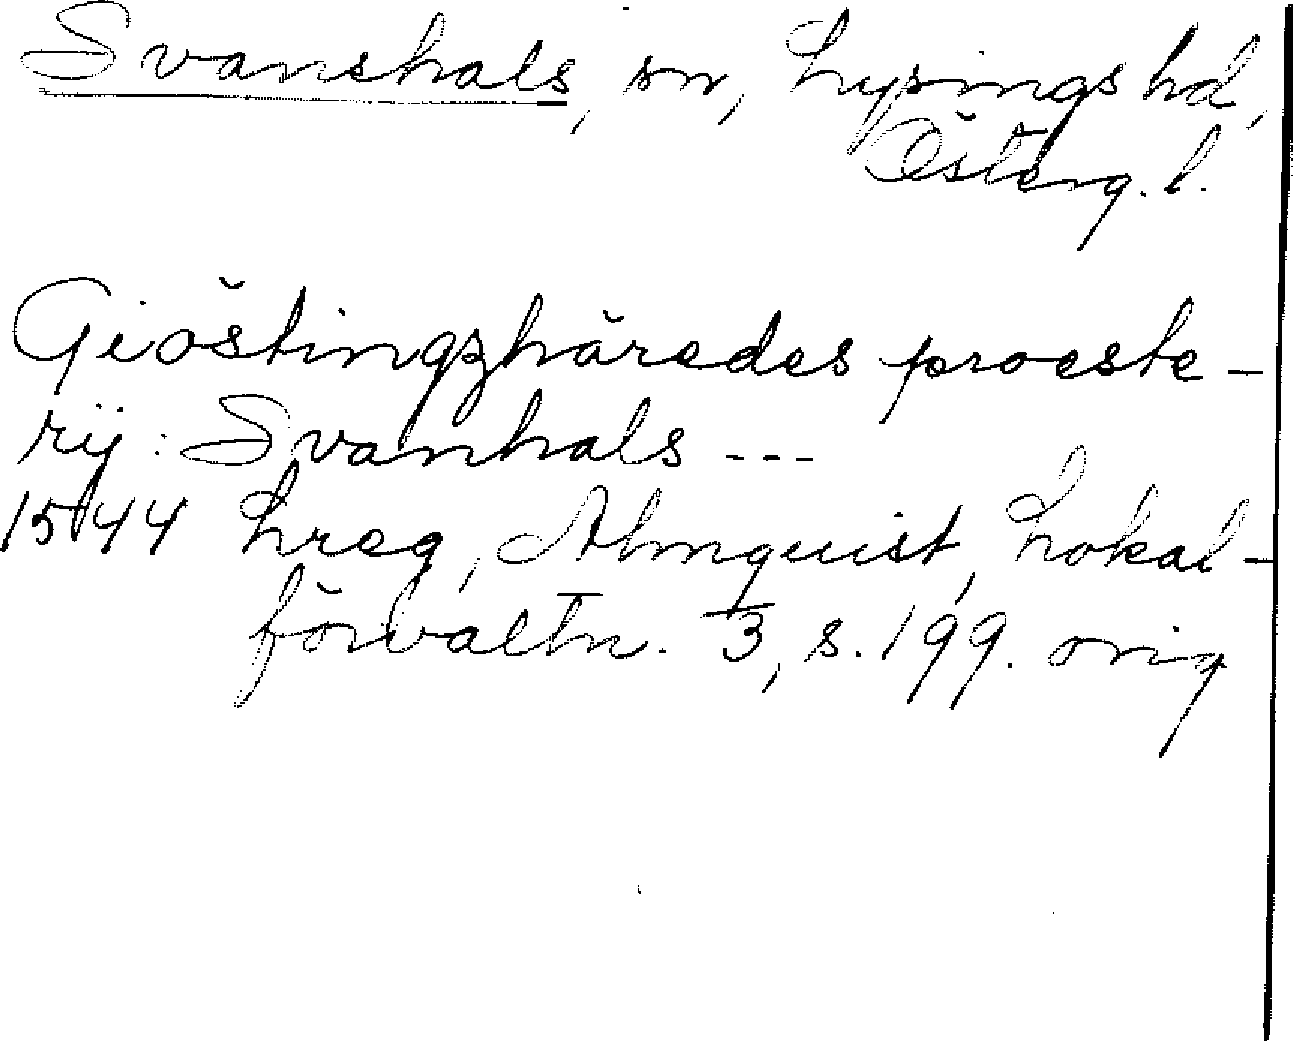 Svanshals, sn, Lysings hd,
Österg. l.
Giöstingzhäredes proeste-
rij: Svanhals ---
1544 Lreg, Almquist, Lokal-
förvaltn. 3, s. 199. orig